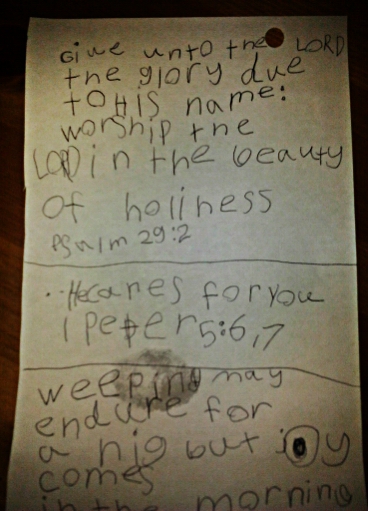 Give unto the LORD
the glory due
to HIS name:
worship the
LORD in the beauty
of holiness
Psalm 29:2
..He cares for you
1 Peter 5:6,7
weeping may
endure for
a nig but joy
comes
in the morning